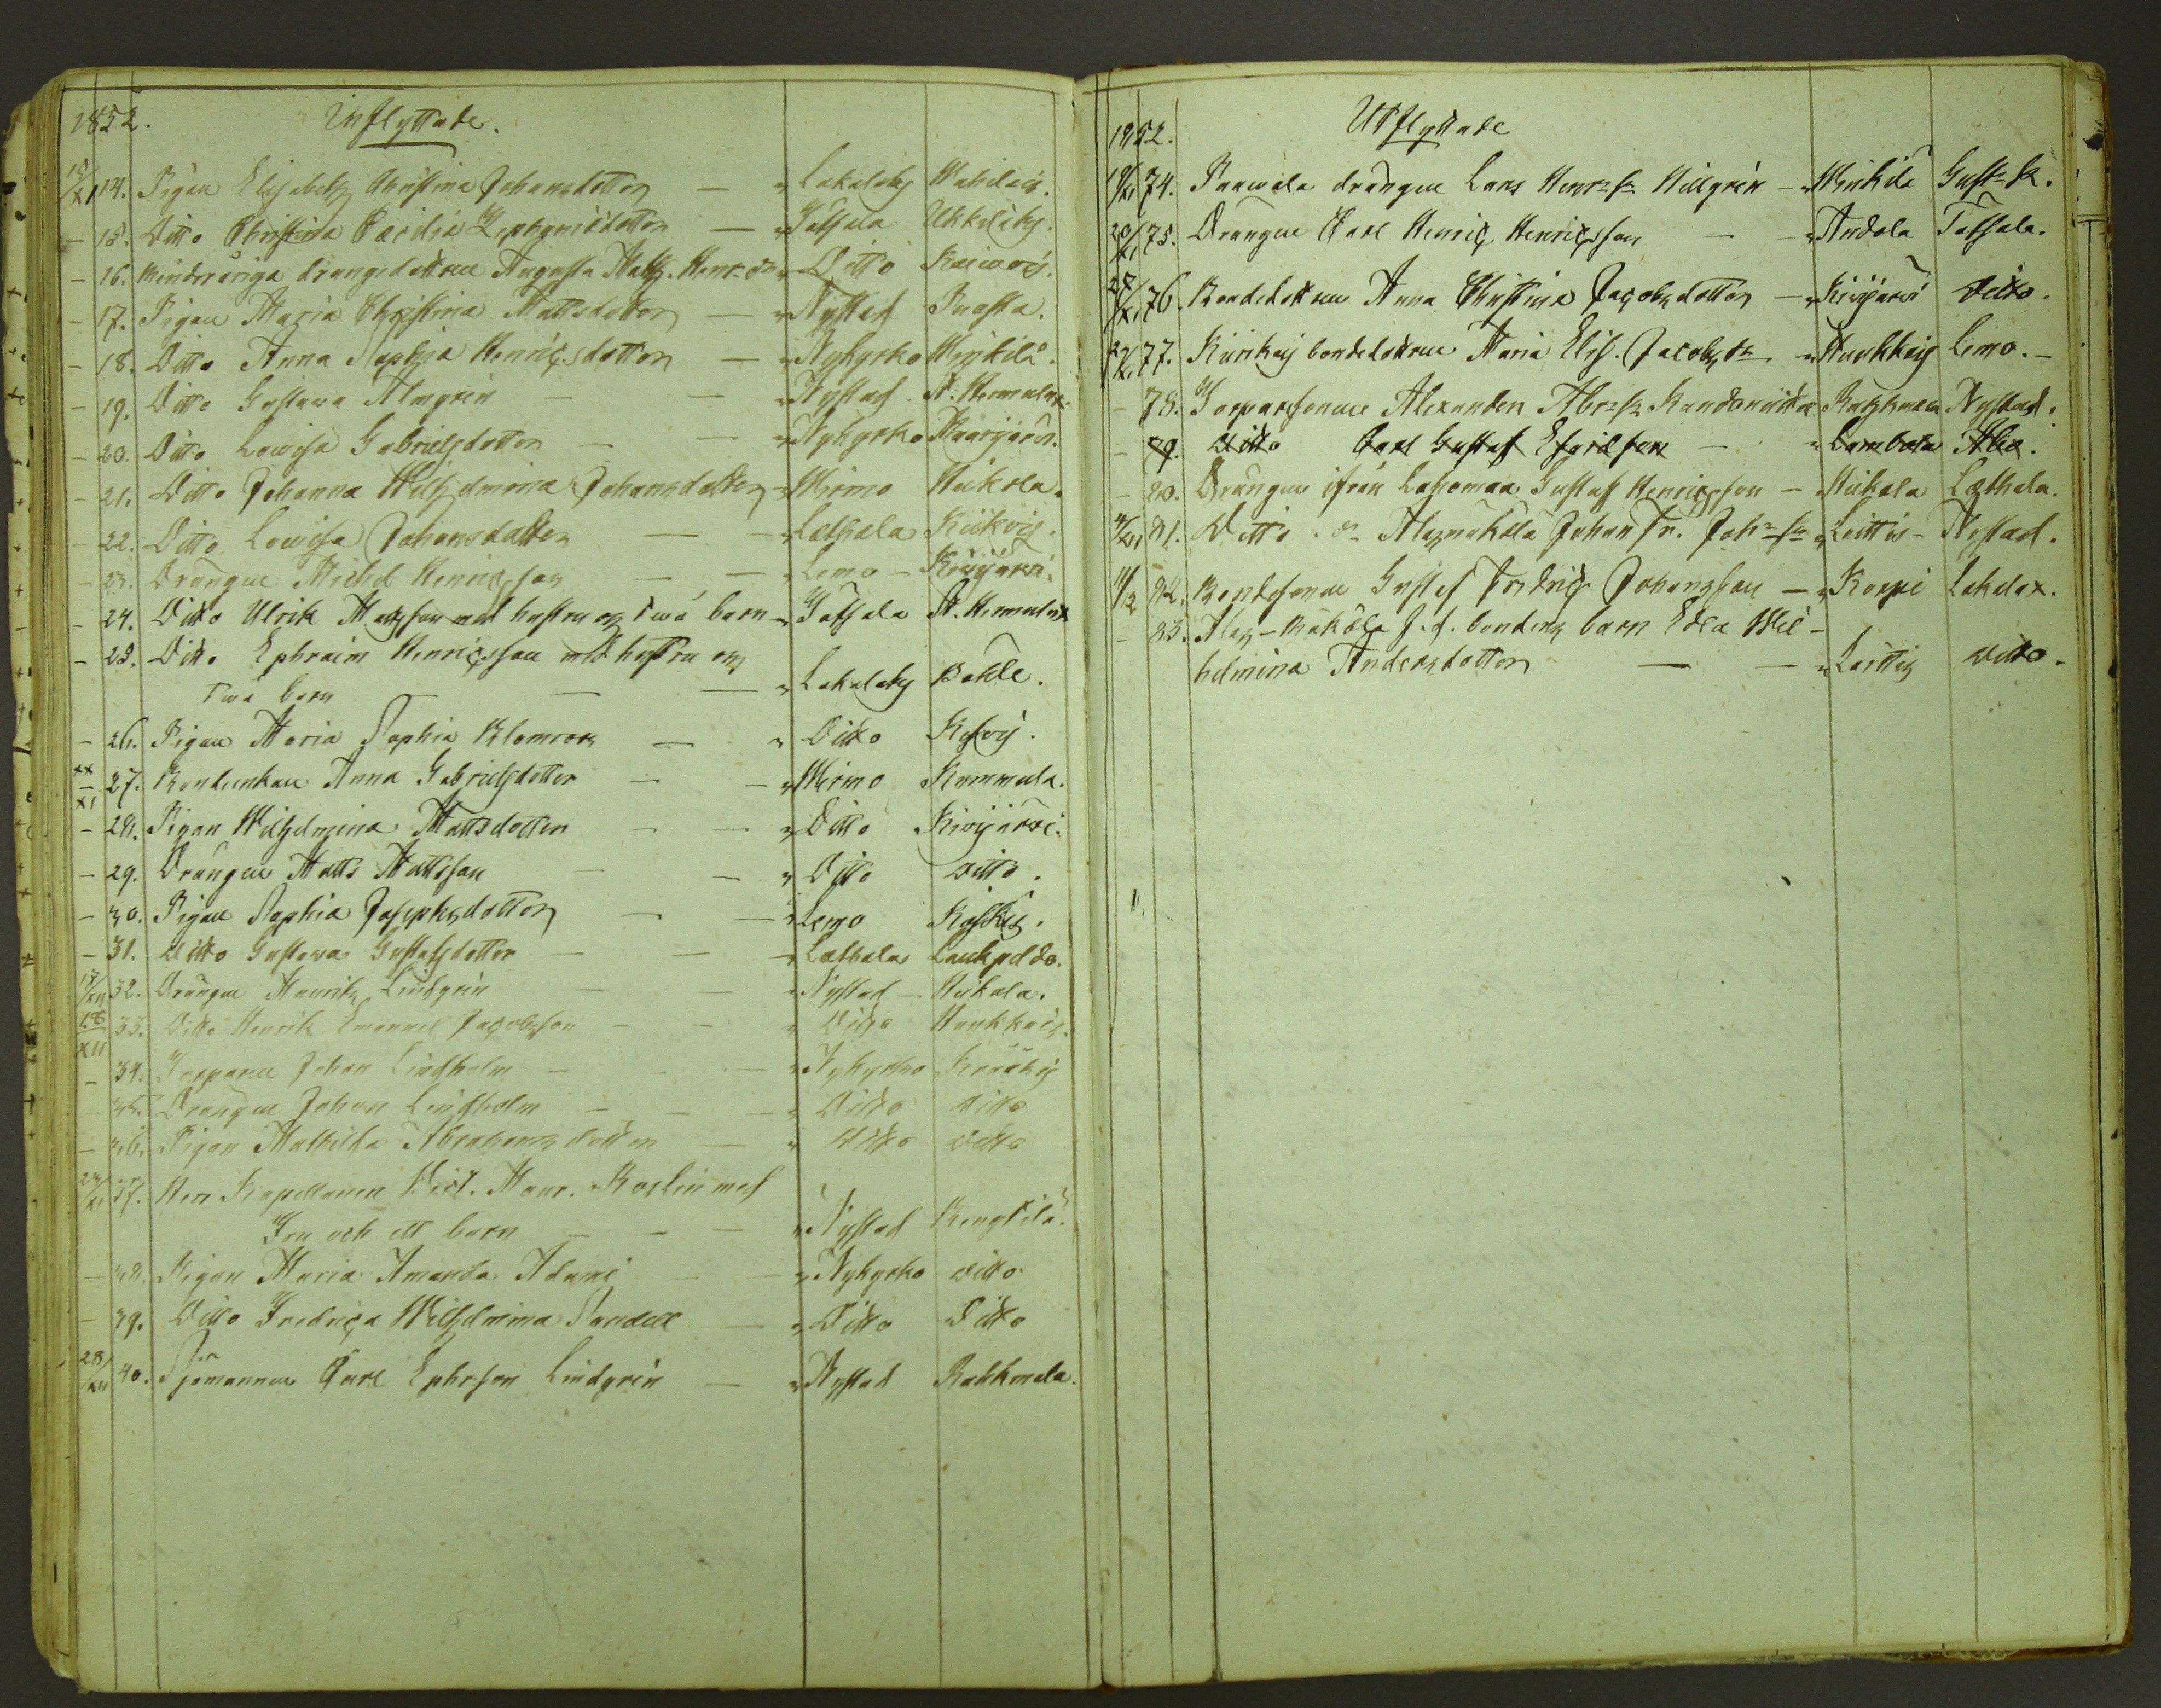 1852. Inflyttade.
15/XI 14. Pigan Elisabeth Christina Johansdotter — " Lokalaks Wahilais.
— 15. Ditto Christina Zephaniædotter — " Tafsala
— 16. Minderåriga drängedottren Augusta Math. Henr. dr " Ditto
— 17. Pigan Maria Christina Mattsdotter — " Nystad Ruosta.
— 18. Ditto Anna Sophia Henricsdotter — " Nykyrko Winkilä.
— 19. Ditto Gustava Almgrén — — " Nystad
— 20. Ditto Lowisa Gabrielsdotter — — " Nykyrko Haarijärvi.
— 21. Ditto Johanna Wilhelmina Johansdotter " Wirmo Hukola.
— 22. Ditto Lowisa Johansdotter — — " Lethala
— 23. Drängen Michel Henricsson — — " Lemo — Kivijärvi.
— 24. Ditto Ulrik Mattsson med hustru och twå barn " Tafsala
— 25. Ditto Ephraim Henricsson med hustru och
twå barn — — " Lokalaks Bohle.
— 26. Pigan Maria Sophia Blomroos — " Ditto
XX/XI 27. Bondeenkan Anna Gabrielsdotter — — " Wirmo Kammela.
— 28. Pigan Wilhelmina Mattsdotter — — " Ditto Kivijärvi.
— 29. Drängen Matts Mattsson — — " Ditto ditto.
— 30. Pigan Sophia Josephsdotter — — " Lemo
— 31. Ditto Gustava Gustafsdotter — — " Lethala Laukpeldo.
17/XII 32. Drängen Henrik Lindgrén — — " Nystad — Hukola.
18/XII 33. Ditto Henrik Emanuel Jacobsson — — " Ditto
— 34. Torparen Johan Lindholm — — " Nykyrko
— 35. Drängen Johan Lindholm — — " Ditto ditto
— 36. Pigan Mathilda Abrahamsdotter — " Ditto ditto
37. Herr Kapellanen Vict. Henr. Roslin med
Fru och ett barn — — " Nystad Bengtilä.
— 38. Pigan Maria Amanda Adami — — " Nykyrko ditto
— 39. Ditto Fredrica Wilhelmina Sandell — " Ditto Ditto
28/XII 40. Sjömannen Carl Ephrson Lindgrén — " Nystad Rahkmala.
1852. Utflyttade
74. Paawola drängen Lars Henr. s. Hillgrén — " Winkilä Gust. k.
20/XI 75. Drängen Carl Henric Henricsson — — " Andola Tafsala.
27/XI 76. Bondedottren Anna Christina Jacobsdotter — " Kivijärvi ditto.
77. bondedottren Maria Elis. Jacobs dr " Lemo. —
— 78. Torparsonen Alexander Abr. s. Rahkmala Nystad.
— 79. Ditto Carl Gustaf — " Åbo.
— 80. Drängen ifrån Lahomaa Gustaf Henricsson — Hukola Lethala.
81. Ditto Johan Fr. Joh. s. " Laittis — Nystad.
82. Bondesonen Gustaf Fredric Johansson — " Korpi Lokalax.
— 83. f. d. bondens barn Edla Wil-
helmina Andersdotter — — " Laittis ditto.